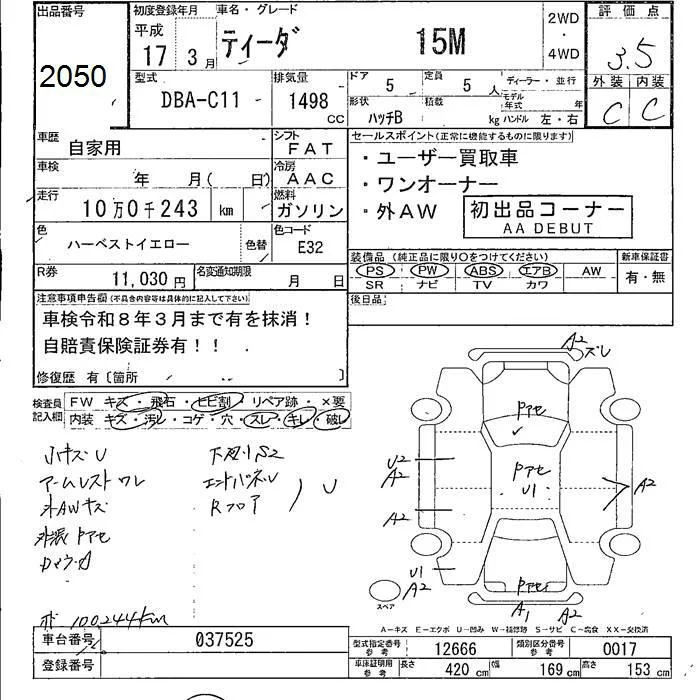 出品番号
2050
初度登録年月
平成
17 3月
車名・グレード
ティーダ 15M
2WD
・
4WD
評価点
3.5
外装 内装
C C
型式
DBA-C11
排気量
1498
CC
ドア 5
定員 5人
ディーラー・並行
形状 ハッチB
積載 kg
モデル年式 年
ハンドル 左・右
車歴
自家用
シフト
FAT
車検
年 月( 日)
冷房
AAC
走行
10万0千243 km
燃料
ガソリン
色
ハーベストイエロー
色替
色コード
E32
R券
11,030円
名変通知期限
月 日
セールスポイント(正常に機能するものに限ります)
・ユーザー買取車
・ワンオーナー
・外AW
初出品コーナー
AA DEBUT
装備品(純正品に限り○をつけてください)
PS PW ABS エアB AW
SR ナビ TV カワ
新車保証書
有・無
後日品
注意事項申告欄(不具合内容等は具体的に記入して下さい)
車検令和8年3月まで有を抹消!
自賠責保険証券有!!
修復歴 有〔箇所 〕
検査員記入欄
FW キズ・飛石・ヒビ割・リペア跡・×要
内装 キズ・汚レ・コゲ・穴・スレ・キレ・破レ
小キズU
アームレストワレ
外AWキズ
下廻りS2
エンドパネルU
Rフロア
U
100244km
A2 ズレ
U2
A2
A2
U1
A2
U1
A2
A1 A2
スペア
A−キズ E−エクボ U−凹み W−補修跡 S−サビ C−腐食 XX−交換済
車台番号
037525
登録番号
型式指定番号 参考
12666
類別区分番号 参考
0017
車庫証明用 参考
長さ 420 cm
幅 169 cm
高さ 153 cm